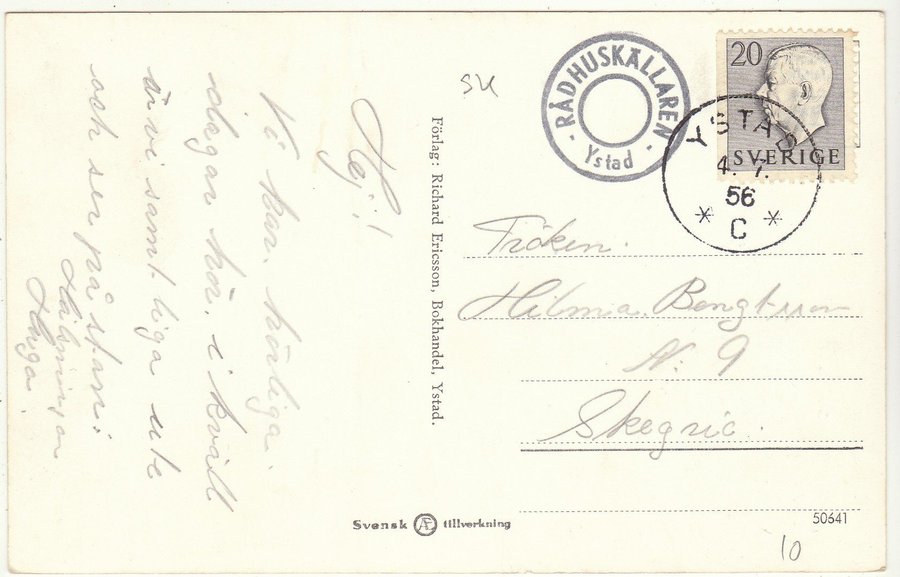 Hej!
Vi har härliga
dagar här, i kväll
är vi samtliga ute
och ser på stan:
Hälsningar
Helga
Förlag: Richard Ericsson, Bokhandel, Ystad.
SU
- RÅDHUSKÄLLAREN -
Ystad
20
SVERIGE
YSTAD
4. 7.
56
* C *
Fröken.
Hilma Bengtsson
N: 9
Skegrie.
Svensk Æ tillverkning
50641
10